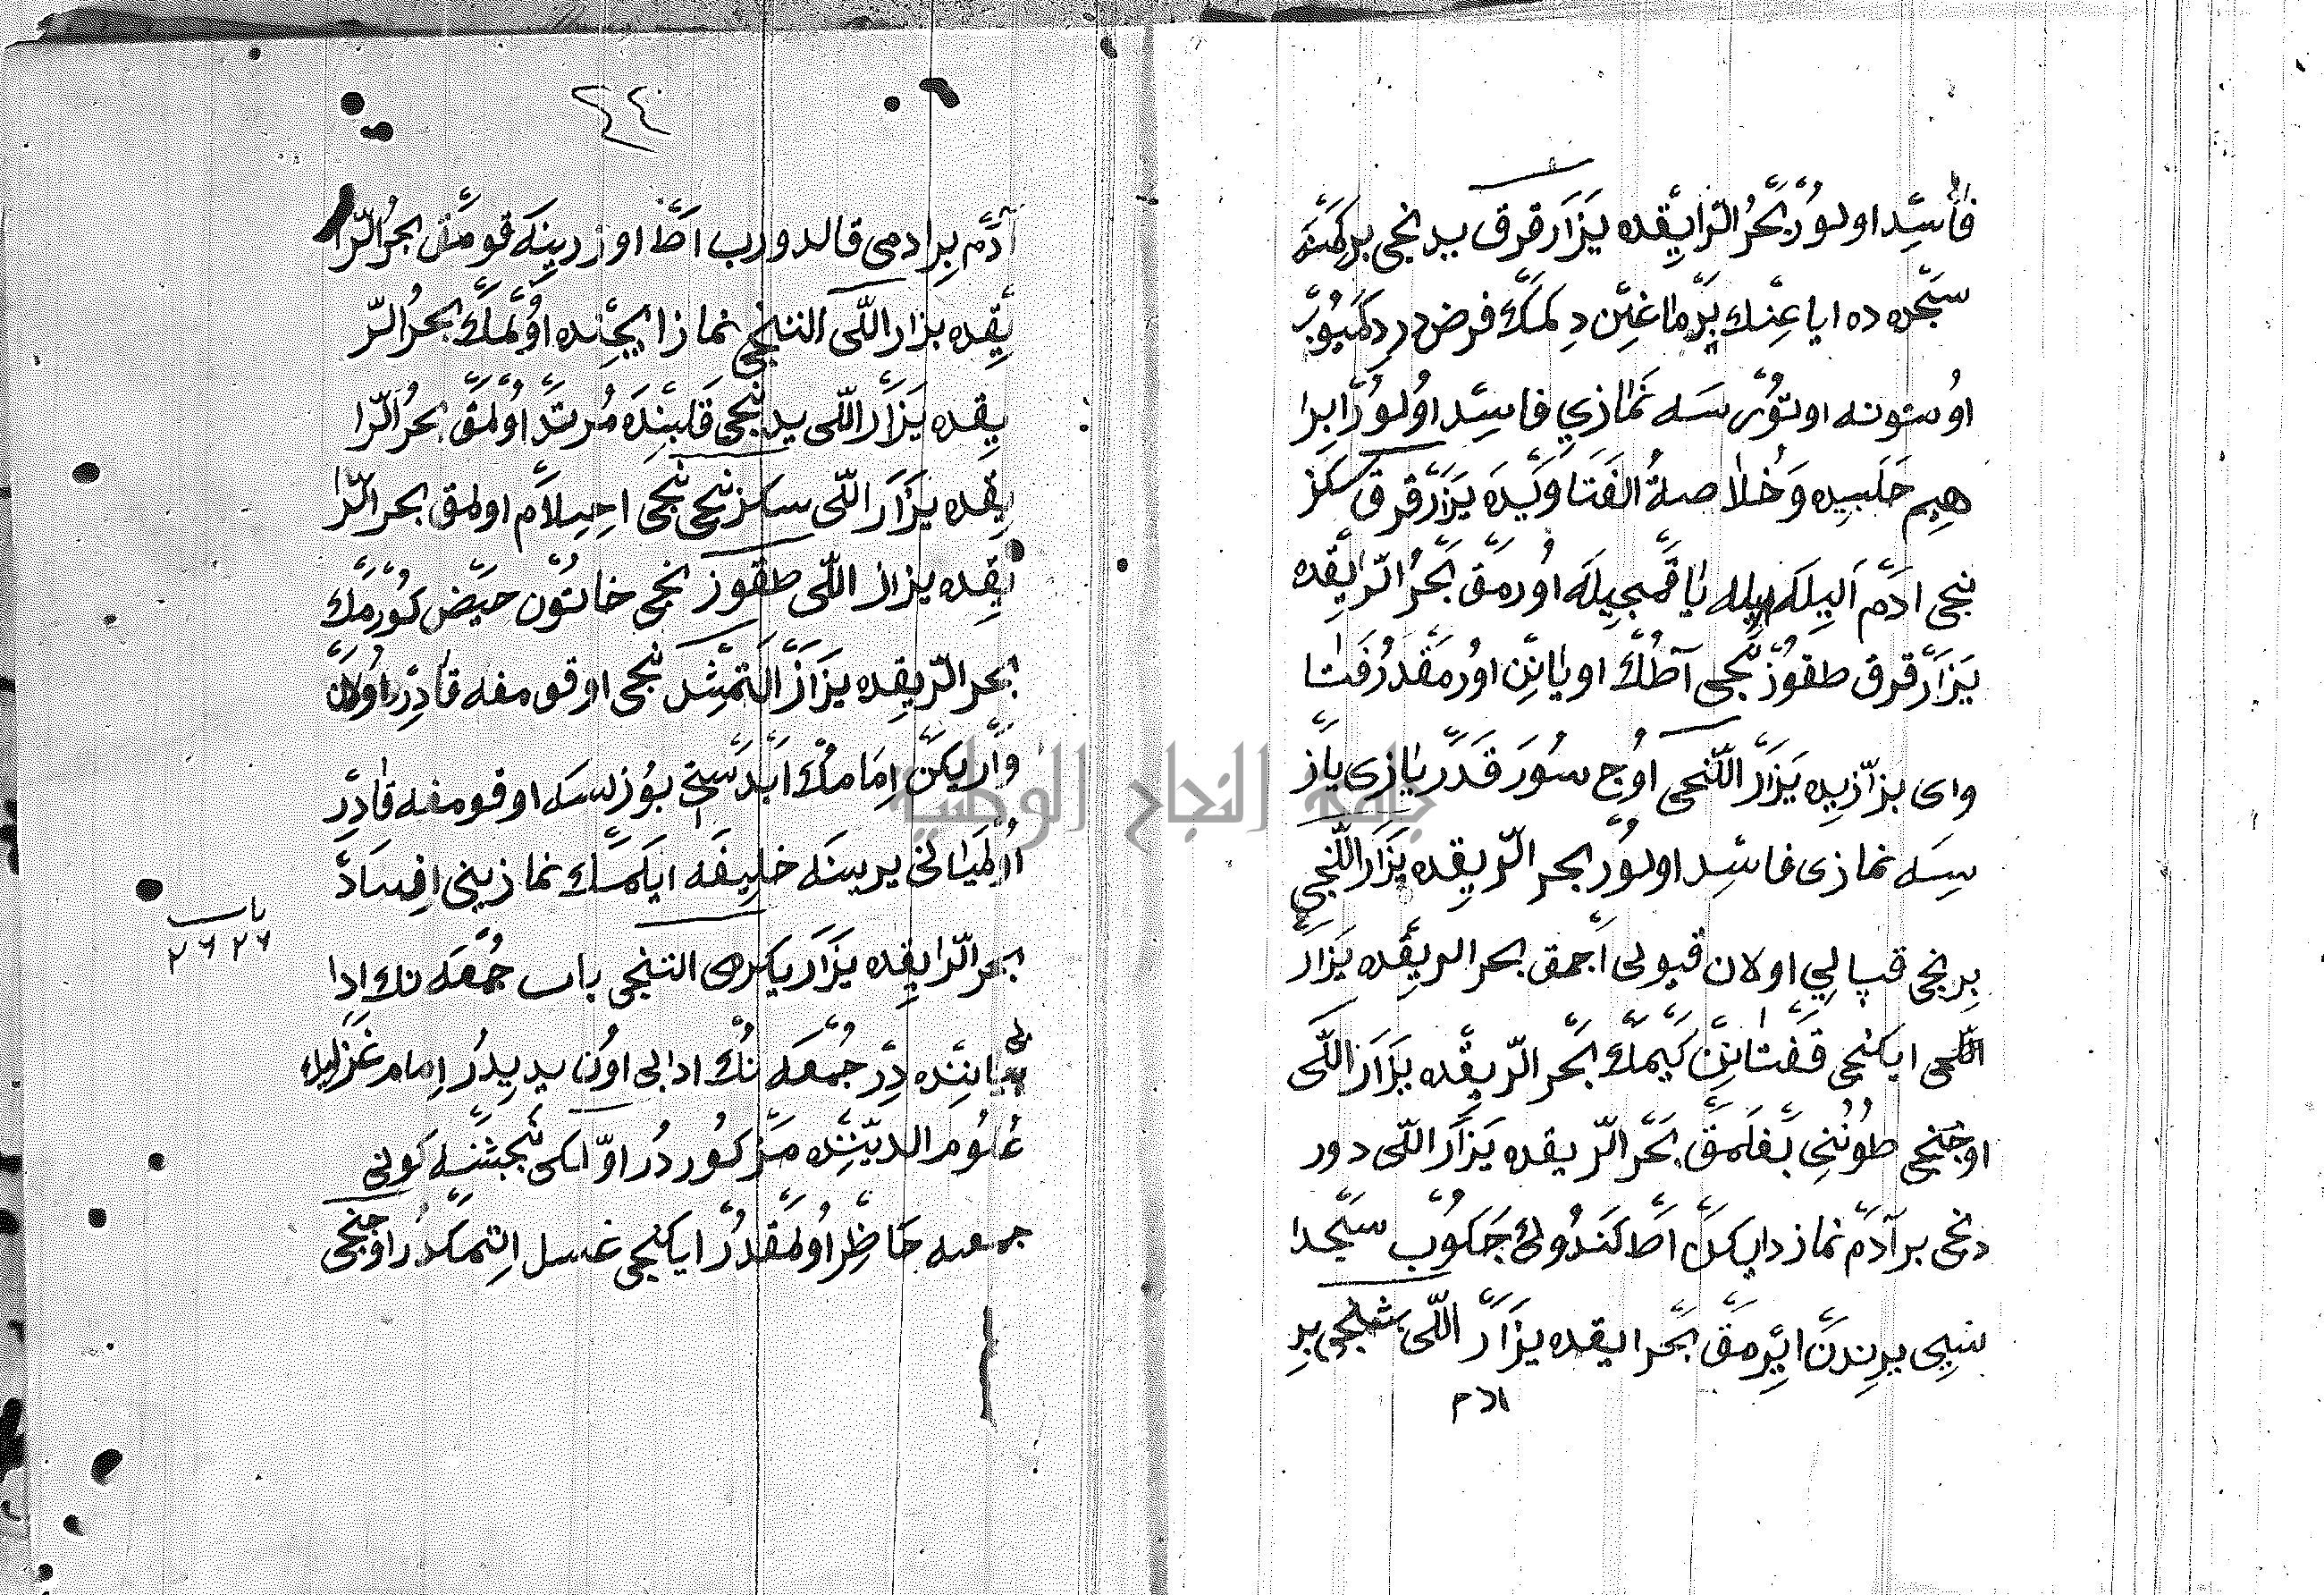 فاسد اولور بحر الرايقده يزار قرق يدنجى بر كمسنه
سجده ده اياغنك پرماغين دكمك فرض در دكميوب
اوستونه اوتورسه نمازي فاسد اولور ابرا
هيم حلبيده وخلاصة الفتاويده يزار قرق سكز
نجى ادم اليله يا قمجيله اورمق بحر الرايقده
يزار قرق طقوزنجى آطك اويانن اورمقدر فتا
واى بزازيده يزار اللنجى اوچ سور قدر يازى ياز
سه نمازى فاسد اولور بحر الريقده يزار اللنجى
برنجى قپالي اولان قپولى اچمق بحر الريقده يزار
اللى ايكنجى قفتانن كيمك بحر الريقده يزار اللى
اوچنجى طوننى بغلمق بحر الريقده يزار اللى دور
دنجى بر آدم نماز دايكن اط كندولى چكوب سجدا
سيى يرندن ايرمق بحر ايقده يزار اللى بشنجى بر
ادم
٤٤
آدم بر ادمى قالدورب اط اوزرينه قومق بحر الرا
يقده يزار اللى التنجى نماز ايچنده اولمك بحر الر
يقده يزار اللى يدنجى قلبنده مرتد اولمق بحر الرا
يقده يزار اللى سكزنجى نجى احيلام اولمق بحر الرا
يقده يزار اللى طقوزنجى خاتون حيض كورمك
بحر الريقده يزار التمشدنجى اوقومغه قادر اولان
وار يكن امامك ابدستى بوزسه اوقومغه قادر
اولميانى يرينه خليفه ايلمسك نمازينى افساد
بحر الرايقده يزار يكرمى التنجى باب جمعه نك ادا
بى بياننده در جمعه نك ادابى اون يديدر امام غزاليده
علوم الدينده مزكور در اولكى پنجشنبه كونى
جمعيه حاظر اولمقدر ايكنجى غسل اتمكدر اوچنجى
باب
٢٦ ٢٦
جامعة النجاح الوطنية